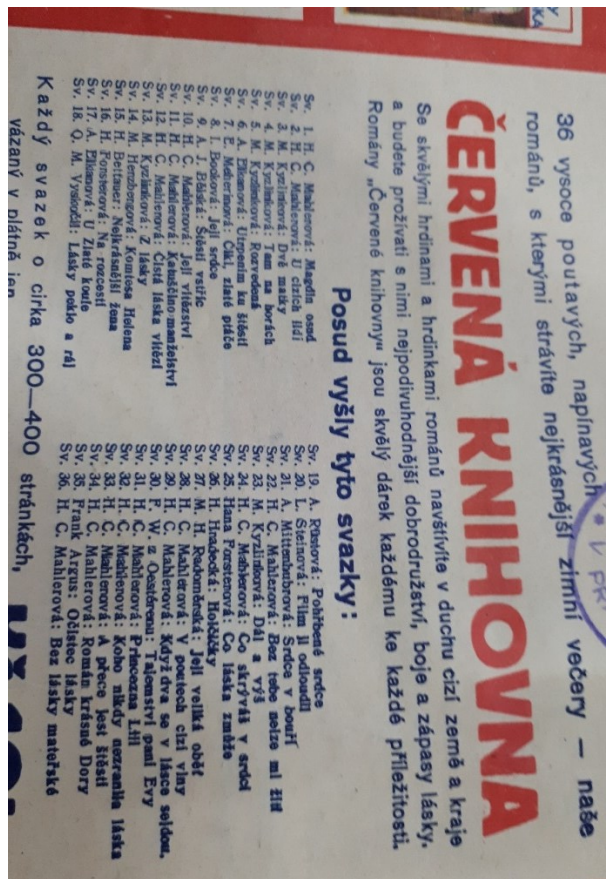 36 vysoce poutavých, napínavých
románů, s kterými strávíte nejkrásnější zimní večery — naše
ČERVENÁ KNIHOVNA
Se skvělými hrdinami a hrdinkami románů navštívíte v duchu cizí země a kraje
a budete prožívati s nimi nejpodivuhodnější dobrodružství, boje a zápasy lásky.
Romány „Červené knihovny" jsou skvělý dárek každému ke každé příležitosti.
Posud vyšly tyto svazky:
Sv. 1. H. C. Mahlerová: Magdin osud
Sv. 2. H. C. Mahlerová: U cizích lidí
Sv. 3. M. Kyzlinková: Dvě matky
Sv. 4. M. Kyzlinková: Tam na horách
Sv. 5. M. Kyzlinková: Rozvedená
Sv. 6. A. Elkanová: Utrpením ku štěstí
Sv. 7. E. Meherinová: Čiki, zlaté ptáče
Sv. 8. I. Booková: Její srdce
Sv. 9. A. J. Bělská: Štěstí vstříc
Sv. 10. H. C. Mahlerová: Její vítězství
Sv. 11. H. C. Mahlerová: Katuššino manželství
Sv. 12. H. C. Mahlerová: Čistá láska vítězí
Sv. 13. M. Kyzlinková: Z lásky
Sv. 14. M. Herzbergová: Komtesa Helena
Sv. 15. H. Bettauer: Nejkrásnější žena
Sv. 16. H. Forsterová: Na rozcestí
Sv. 17. A. Elkanová: U Zlaté koule
Sv. 18. Q. M. Vyskočil: Lásky peklo a ráj
Sv. 19. A. Růstová: Pohřbené srdce
Sv. 20. L. Steinová: Film ji odloudil
Sv. 21. A. Mittenburbrová: Srdce v bouři
Sv. 22. H. C. Mahlerová: Bez tebe nelze mi žít
Sv. 23. M. Kyzlinková: Dál a výš
Sv. 24. H. C. Mahlerová: Co skrýváš v srdci
Sv. 25. Hana Forstenová: Co láska zmůže
Sv. 26. H. Hradecká: Holčičky
Sv. 27. M. H. Radoměrská: Její veliká oběť
Sv. 28. H. C. Mahlerová: V poutech cizí viny
Sv. 29. H. C. Mahlerová: Když dva se v lásce sejdou.
Sv. 30. F. W. z Oestérenu: Tajemství paní Evy
Sv. 31. H. C. Mahlerová: Princezna Lili
Sv. 32. H. C. Mahlerová: Koho nikdy nezranila láska
Sv. 33. H. C. Mahlerová: A přece jest štěstí
Sv. 34. H. C. Mahlerová: Román krásné Dory
Sv. 35. Frank Arzus: Očistec lásky
Sv. 36. H. C. Mahlerová: Bez lásky mateřské
Každý svazek o cirka 300—400 stránkách,
vázaný v plátně jen